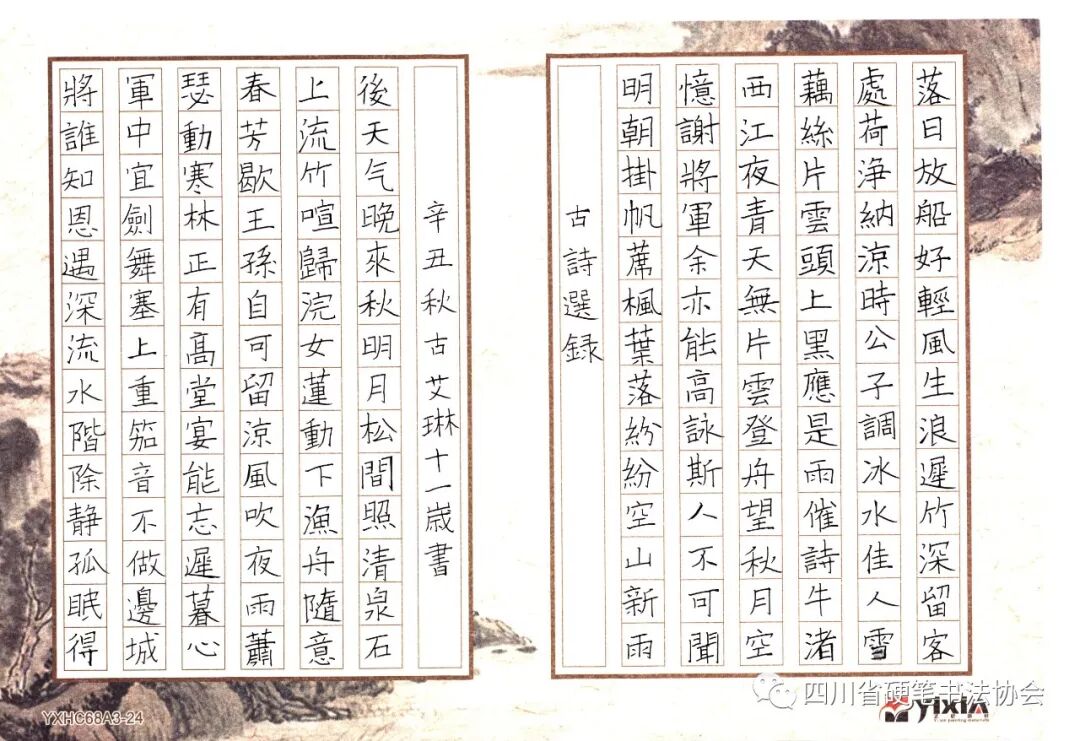 落日放船好輕風生浪遲竹深留客
處荷淨納涼時公子調冰水佳人雪
藕絲片雲頭上黑應是雨催詩牛渚
西江夜青天無片雲登舟望秋月空
憶謝將軍余亦能高詠斯人不可聞
明朝掛帆蓆楓葉落紛紛空山新雨
古詩選録
辛丑秋古艾琳十一歲書
後天气晚來秋明月松間照清泉石
上流竹喧歸浣女蓮動下漁舟隨意
春芳歇王孫自可留涼風吹夜雨蕭
瑟動寒林正有高堂宴能忘遲暮心
軍中宜劍舞塞上重笳音不做邊城
將誰知恩遇深流水階除静孤眠得
YXHC68A3-24
四川省硬笔书法协会
yixin